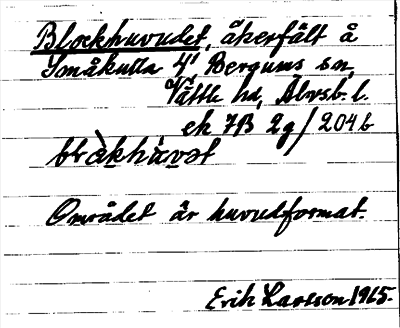 Blockhuvudet, åkerfält å
Småkulla 4¹ Bergums sn,
Vättle hd, Älvsb. l.
ek 7B 2g/204b
blåkhùvət
Området är huvudformat.
Erik Larsson 1965.